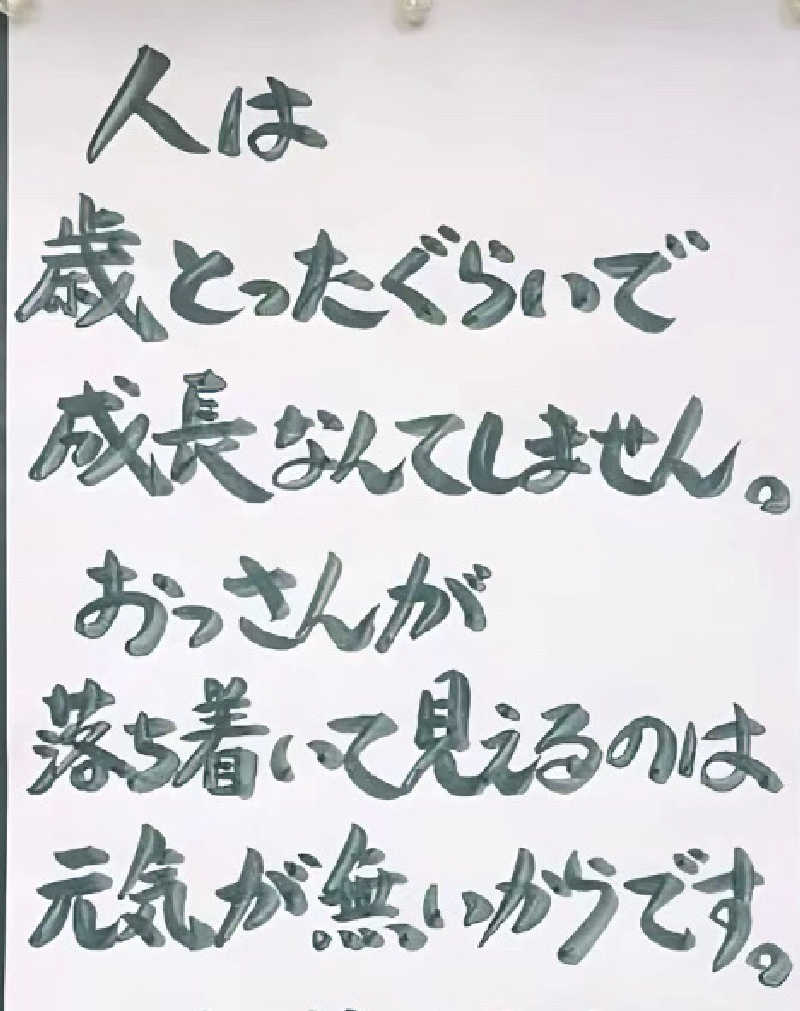 人は
歳とったぐらいで
成長なんてしません。
おっさんが
落ち着いて見えるのは
元気が無いからです。